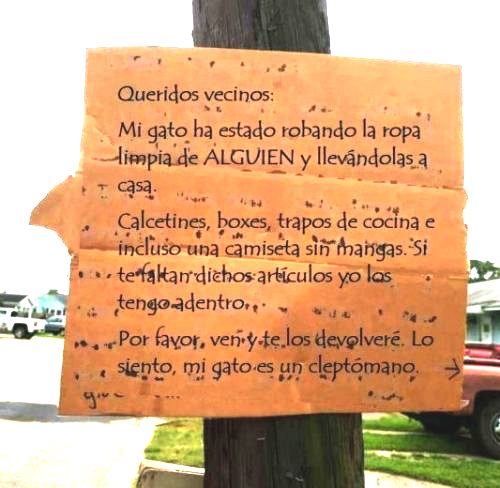 Queridos vecinos:
Mi gato ha estado robando la ropa
limpia de ALGUIEN y llevándolas a
casa.
Calcetines, boxes, trapos de cocina e
incluso una camiseta sin mangas. Si
te faltan dichos artículos yo los
tengo adentro.
Por favor, ven y te los devolveré. Lo
siento, mi gato es un cleptómano.